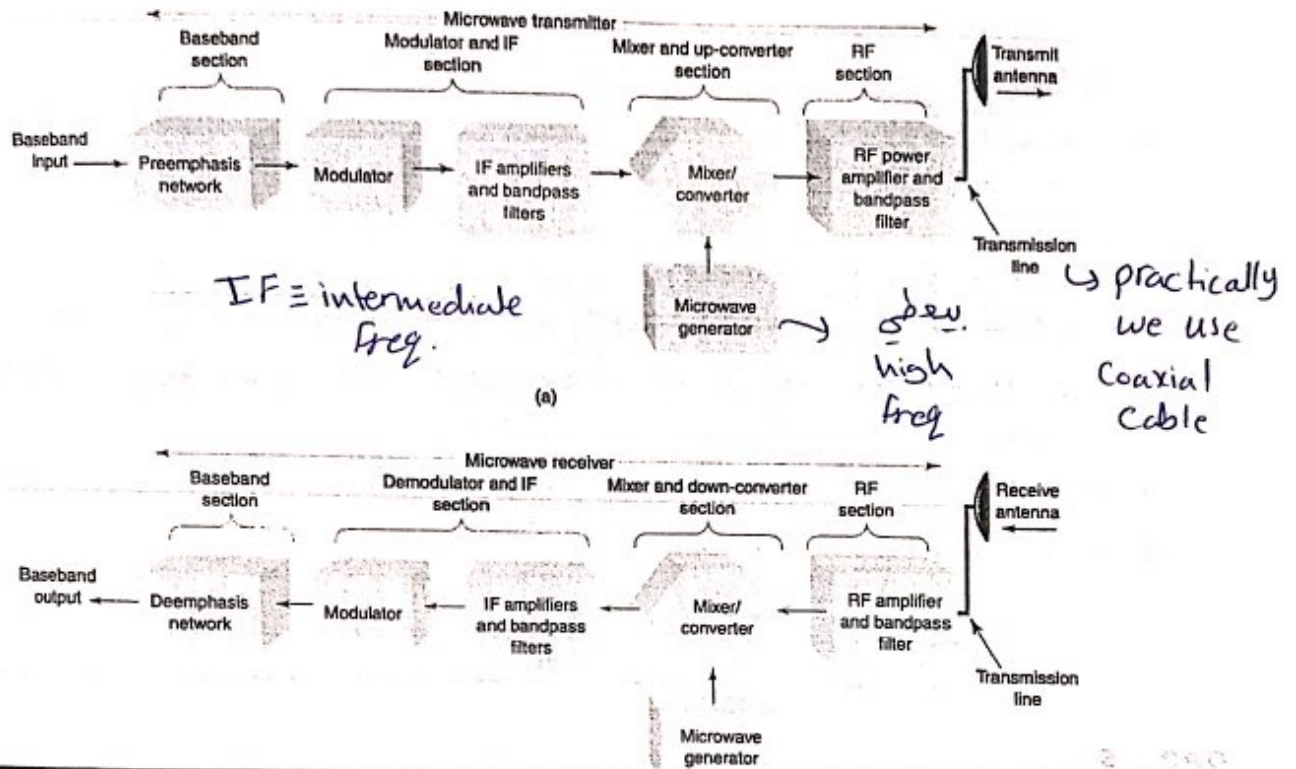 Microwave transmitter
Baseband
section
Modulator and IF
section
Mixer and up-converter
section
RF
section
Transmit
antenna
Baseband
Input
Preemphasis
network
Modulator
IF amplifiers
and bandpass
filters
Mixer/
converter
RF power
amplifier and
bandpass
filter
Transmission
line
Microwave
generator
IF ≡ intermediate
freq.
high
freq
↳ practically
we use
Coaxial
Cable
(a)
Microwave receiver
Baseband
section
Demodulator and IF
section
Mixer and down-converter
section
RF
section
Receive
antenna
Baseband
output
Deemphasis
network
Modulator
IF amplifiers
and bandpass
filters
Mixer/
converter
RF amplifier
and bandpass
filter
Transmission
line
Microwave
generator